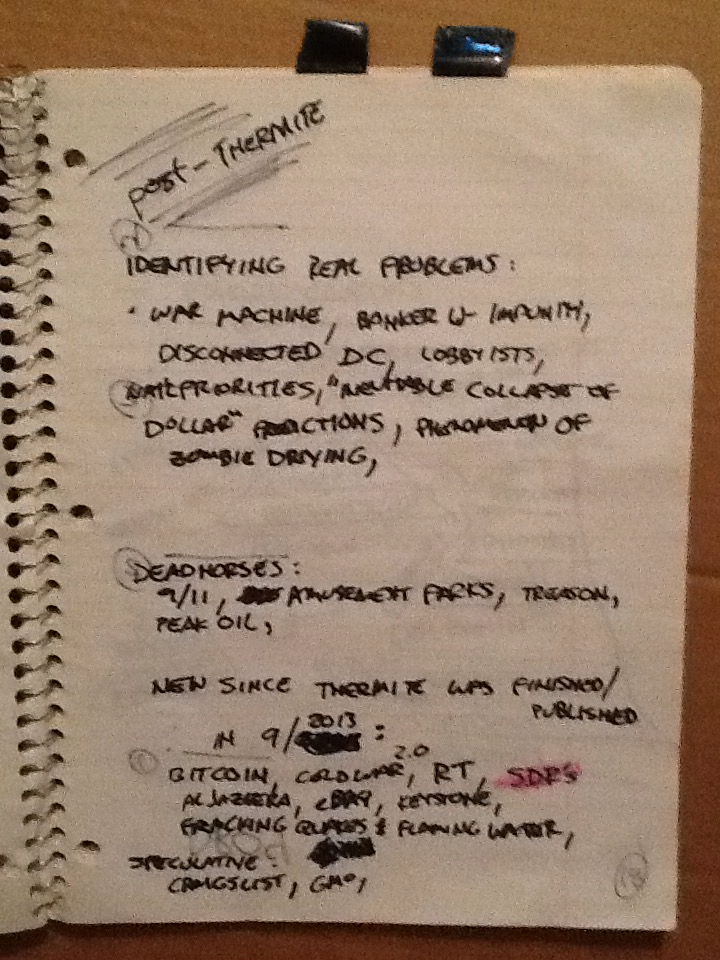 POST-THERMITE
2
IDENTIFYING REAL PROBLEMS:
• WAR MACHINE, BANKER W- IMPUNITY,
DISCONNECTED DC, LOBBYISTS,
PRIORITIES, " COLLAPSE OF
DOLLAR" , PHENOMENON OF
ZOMBIE DRIVING,
DEADHORSES:
9/11, AMUSEMENT PARKS, TREASON,
PEAK OIL,
NEW SINCE THERMITE WAS FINISHED/
PUBLISHED
2013
IN 9/ :
1
2.0
BITCOIN, COLD WAR, RT, SDRS
ALJAZEERA, EBAY, KEYSTONE,
FRACKING QUAKES & FLAMING WATER,
SPECULATIVE:
CRAIGSLIST, GMO,